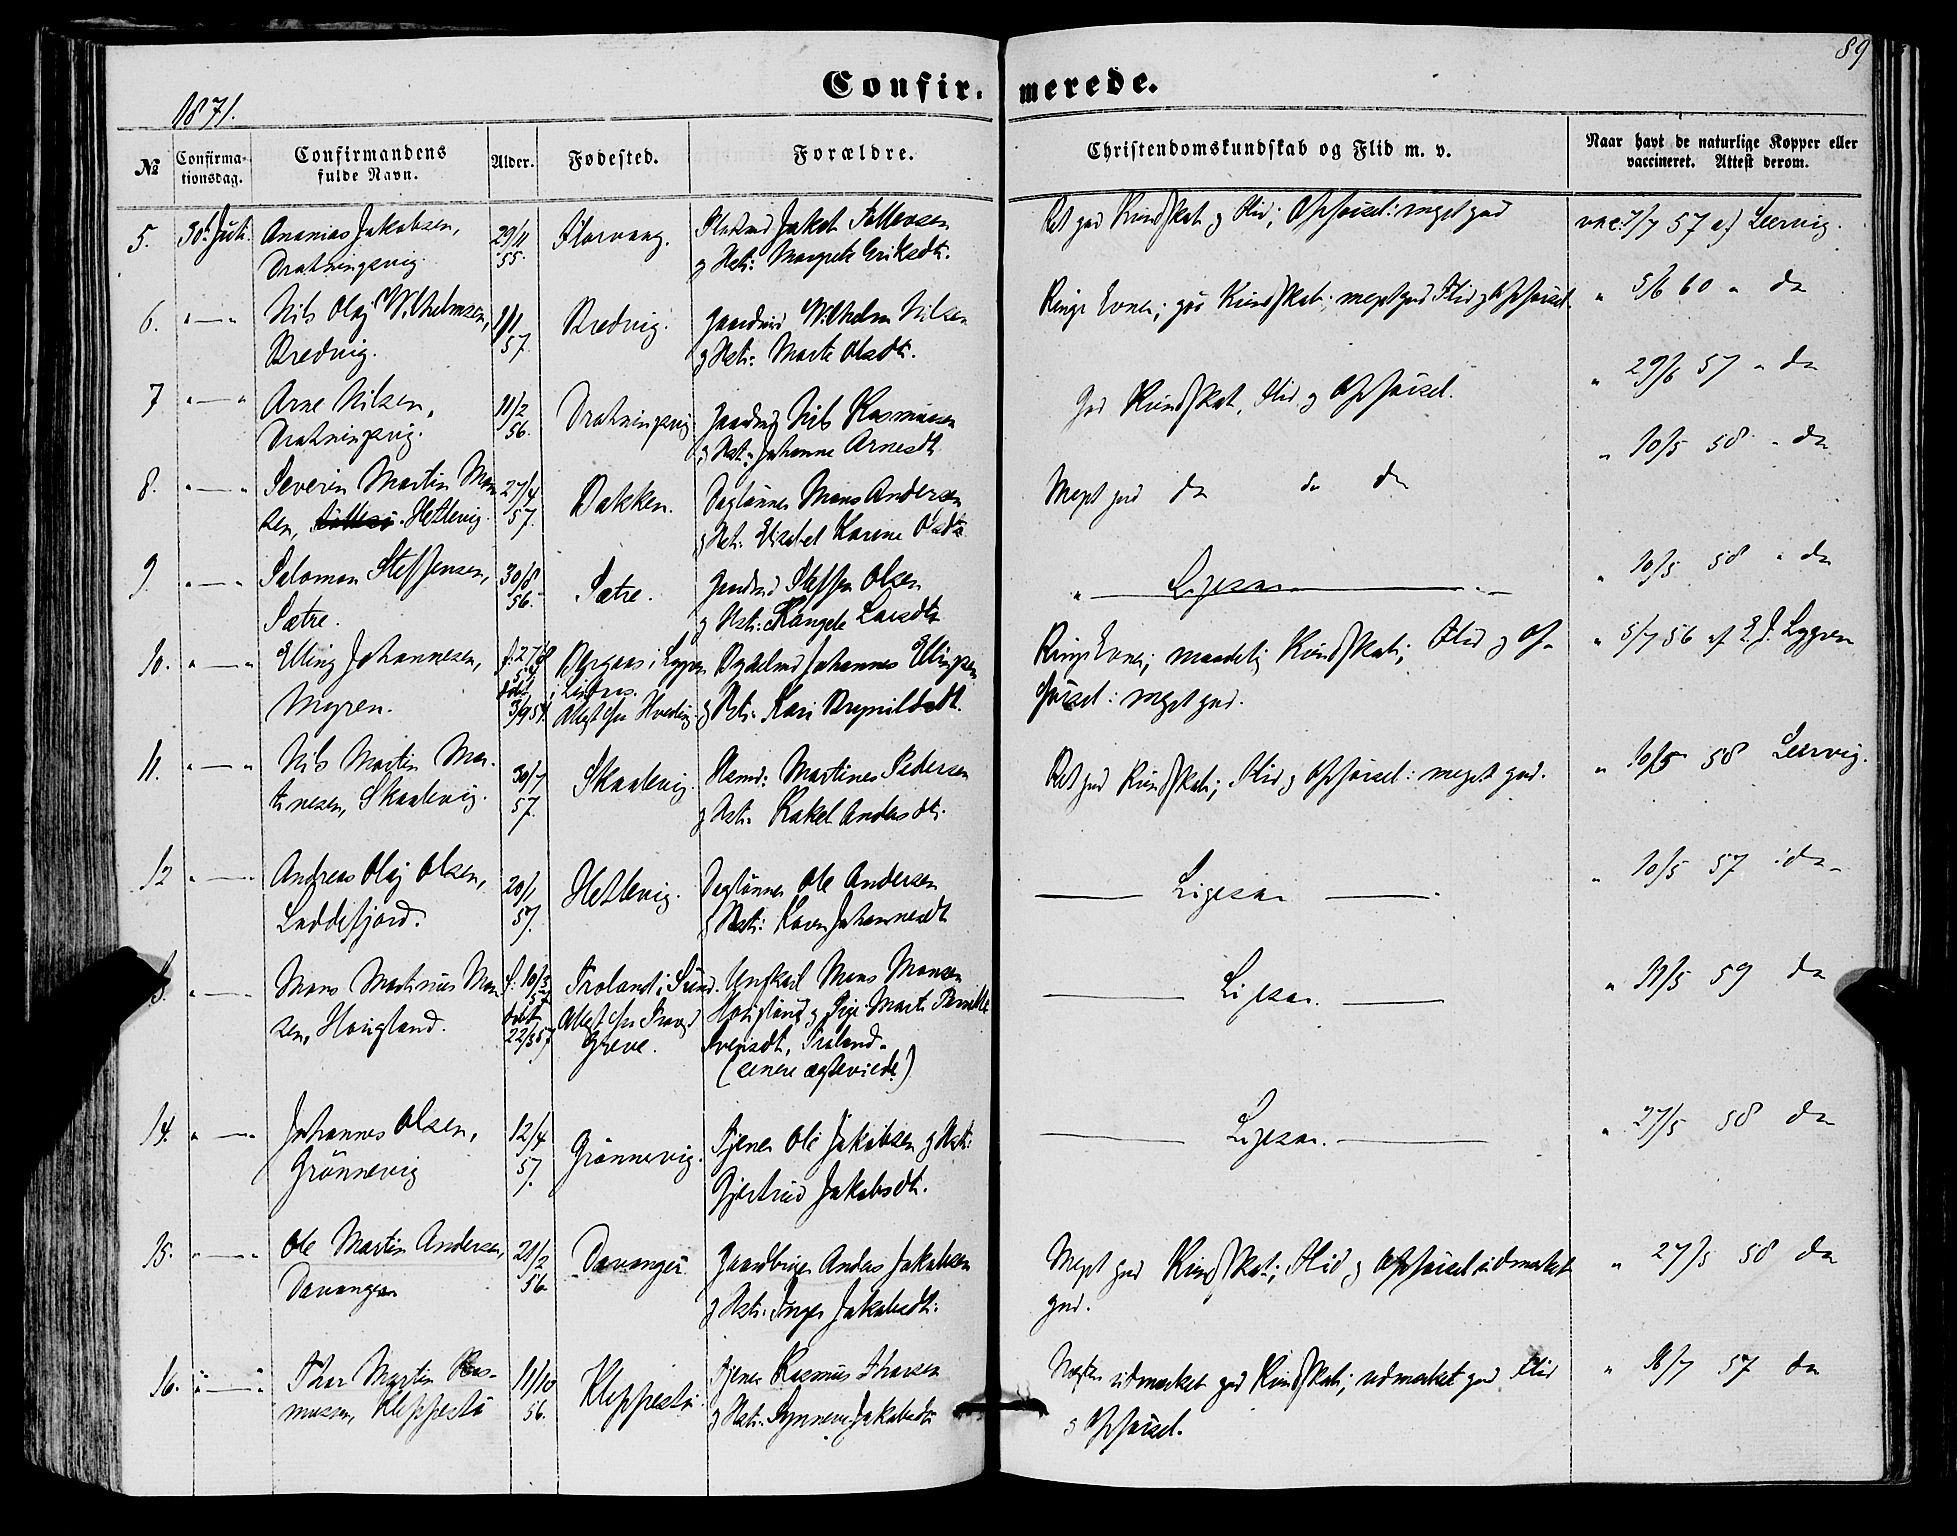 89
Confirmerede.
1871.
№
Confirmationsdag.
Confirmandens fulde Navn.
Alder.
Fødested.
Forældre.
Christendomskundskab og Flid m. v.
Naar havt de naturlige Kopper eller vaccineret. Attest derom.
5.
Ananias Jakobsen,
Dratningsvig.
29/11
55.
Florvaag.
Jakob
g Hstr: Margrete Eriksdtr.
Ret god Kundskab g Flid; Opførsel: meget god
vacc: 7/7 57 af Leervig.
6.
Nils Olaj Wilhelmsen,
Bredvig.
1/1
57.
Bredvig.
Gaardmd Wilhelm Nilsen
g Hstr: Marte Olsdtr.
Ringe Evner; god Kundskab; meget god Flid g Opførsel.
" 5/6 60 " do
7
Arne Nilsen,
Dratningsvig.
11/2
56.
Dratningsvig.
Gaardmd Nils Rasmussen
g Hstr: Johanne Arnesdtr
God Kundskab, Flid g Opførsel.
" 29/6 57 " do
8.
Severin Martin Mon
sen, Hetlevig.
27/4
57.
Bakken.
Daglønner Mons Andersen
g Hstr: Elisabet Karine Olsdtr
Meget god do do do
" 10/5 58 " do
9.
Salomon Steffensen,
Sætre.
30/8
56.
Sætre.
Gaardmd Steffen Olsen
g Hstr: Rangele Larsdtr
" Ligesaa
" 10/5 58 " do
10.
Elling Johannesen,
Myren.
f: 27/8
døbt
3/9 54
i Lygren
i Lindaas.
Attest fra
Bygselmd Johannes Ellingsen
g Hstr: Kari Brynildsdtr.
Ringe Evner; maadelig Kundskab; Flid g Op-
førsel: meget god.
" 5/7 56 af E. J. Lygren
11.
Nils Martin Mar-
tinesen, Skaalevig.
30/7
57.
Skaalevig.
Husmd: Martines Pedersen
g Hstr: Rakel Andersdtr.
Ret god Kundskab; Flid g Opførsel: meget god.
" 10/5 58 Leervig.
12
Andreas Olaj Olsen,
Laddefjord.
20/1
57.
Hetlevig.
Daglønner Ole Andersen
g Hstr: Karen Johannesdtr
Ligesaa
" 10/5 57 : do
13.
Mons Martinus Mon
sen, Hougland.
f: 10/3
57
døbt
22/3 57
Troland i Sund.
Attest fra Provst
Greve.
Ungkarl Mons Monsen
Hougland g Pige Marte Pernille
Svensdtr, Troland.
(senere ægteviede)
Ligesaa.
" 11/5 59 do
14.
Johannes Olsen,
Grønnevig
12/4
57.
Grønnevig.
Tjener Ole Jakobsen g Hstr:
Gjertrud Jakobsdtr.
Ligesaa.
" 27/5 58 do
15.
Ole Martin Andersen,
Davanger
21/2
56
Davanger
Gaardbruger Anders Jakobsen
g Hstr: Inger Jakobsdtr:
Meget god Kundskab; Flid g Opførsel udmærket
god.
" 27/5 58 do
16.
Thor Martin Ras-
mussen, Kleppestø
11/10
56.
Kleppestø.
Tjener Rasmus Thorsen
g Hstr: Synneve Jakobsdtr
Næsten udmærket god Kundskab; udmærket god Flid
g Opførsel.
" 16/7 57 do